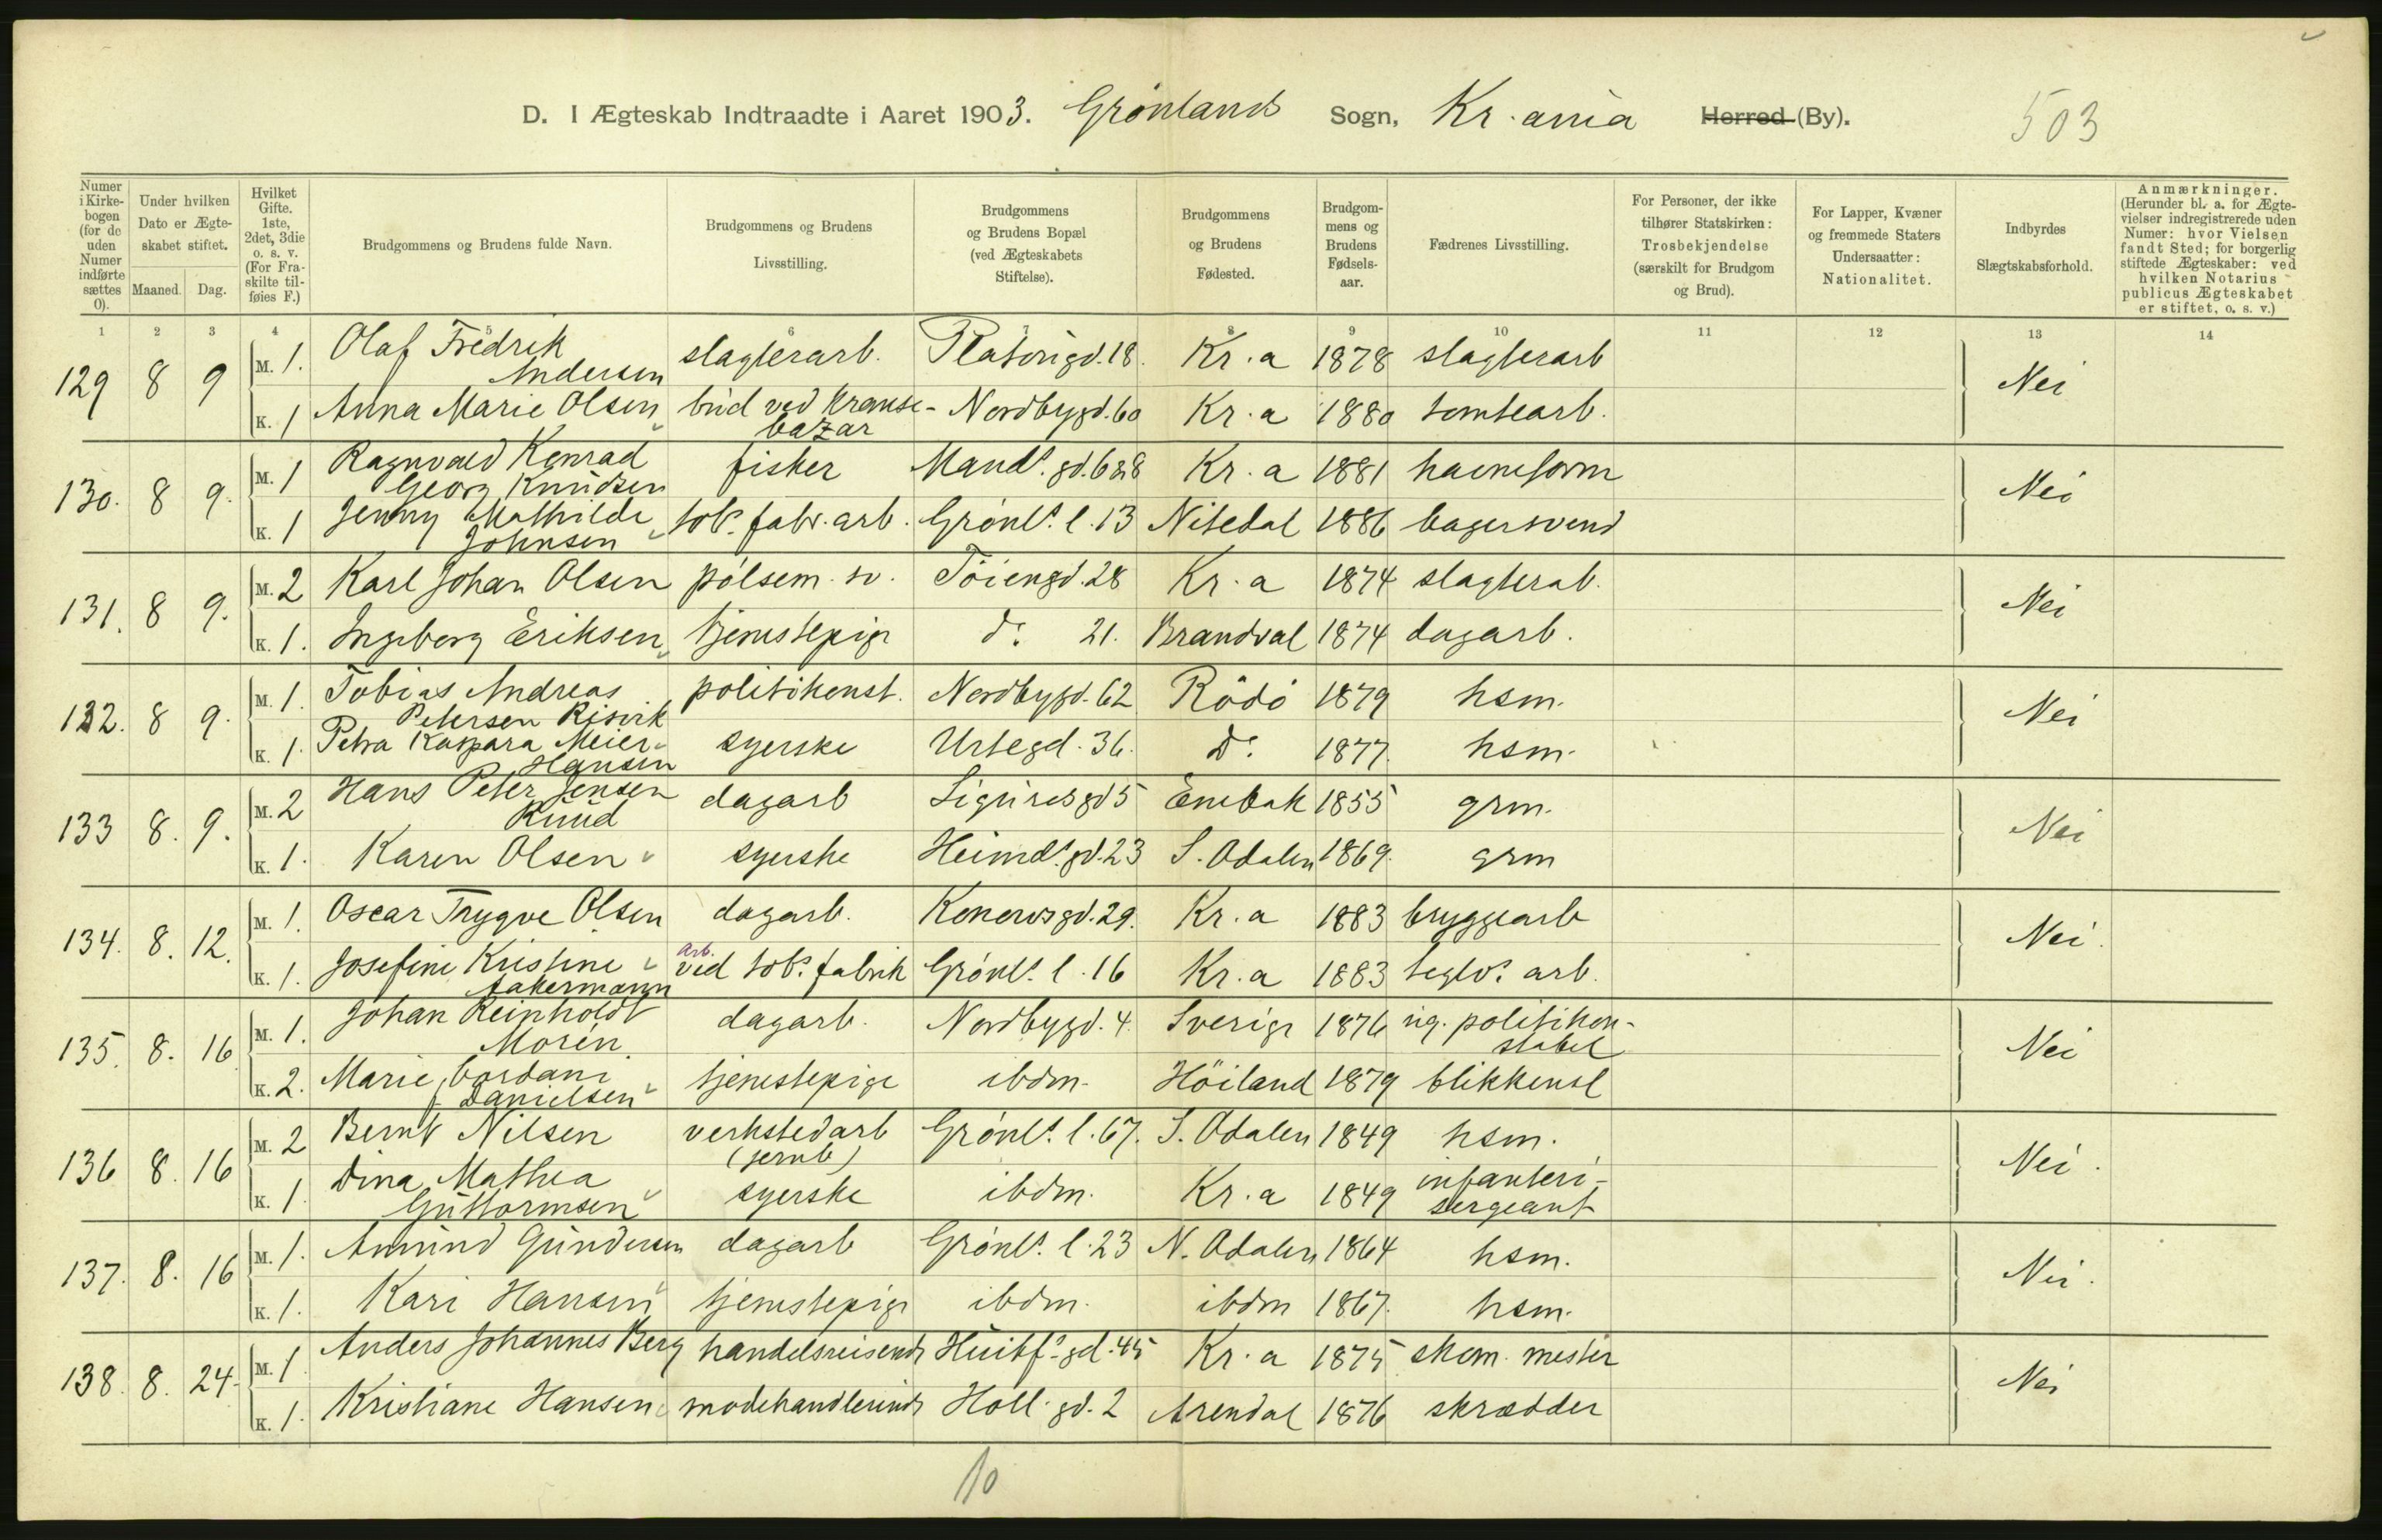 D. I Ægteskab Indtraadte i Aaret 1903. Grönlands Sogn, Kr.ania Herred (By). 503
Numer i Kirkebogen (for de uden Numer indførte sættes 0).
Under hvilken Dato er Ægteskabet stiftet.
Maaned. Dag.
Hvilket Gifte. 1ste, 2det, 3die o. s. v. (For Fraskilte tilføies F.)
Brudgommens og Brudens fulde Navn.
Brudgommens og Brudens Livsstilling.
Brudgommens og Brudens Bopæl (ved Ægteskabets Stiftelse).
Brudgommens og Brudens Fødested.
Brudgommens og Brudens Fødselsaar.
Fædrenes Livsstilling.
For Personer, der ikke tilhører Statskirken: Trosbekjendelse (særskilt for Brudgom og Brud).
For Lapper, Kvæner og fremmede Staters Undersaatter: Nationalitet.
Indbyrdes Slægtskabsforhold.
Anmærkninger. (Herunder bl. a. for Ægtevielser indregistrerede uden Numer: hvor Vielsen fandt Sted; for borgerlig stiftede Ægteskaber: ved hvilken Notarius publicus Ægteskabet er stiftet, o. s. v.)
1 2 3 4 5 6 7 8 9 10 11 12 13 14
129 8 9 M. 1. Olaf Fredrik Andersen slagterarb. Platousgd. 18. Kr.a 1878 slagterarb Nei
K. 1 Anna Marie Olsen bud ved Kransebazar Nordbygd. 60 Kr.a 1880 tomtearb.
130. 8 9. M. 1 Ragnvald Konrad Georg Knudsen fisker Mands.gd. 6 & 8 Kr.a 1881 havneform Nei
K. 1 Jenny Mathilde Johnsen tobs. fabr. arb. Grönls. l. 13 Nitedal 1886 bagersvend
131. 8 9. M. 2 Karl Johan Olsen pölsem. sv. Töiengd. 28 Kr.a 1874 slagterab. Nei
K. 1. Ingeborg Eriksen tjenestepige do. 21. Brandval 1874 dagarb.
132. 8 9. M. 1. Tobias Andreas Petersen Risvik politikonst. Nordbygd. 62 Rödö 1879 hsm. Nei
K. 1. Petra Kaspara Meier Hansen syerske Urtegd. 36. Do. 1877. hsm.
133 8. 9. M. 2 Hans Peter Jensen Ruud dagarb Sigursgd 5 Enebak 1855 grm. Nei
K. 1. Karen Olsen syerske Heimds.gd. 23 S. Odalen 1869. grm
134. 8. 12. M. 1. Oscar Trygve Olsen dagarb. Kenowsgd. 29. Kr.a 1883 bryggearb Nei.
K. 1. Josefine Kristine Aakermann arb. ved tobs. fabrik Grönls. l. 16 Kr.a 1883 teglvs. arb.
135. 8. 16 M. 1. Johan Reinholdt Morén. dagarb. Nordbygd. 4. Sverige 1876 ug. politikonstabel Nei
K. 2. Marie Cordani f. Danielsen tjenestepige ibdm. Höiland 1879 blikkensl
136 8. 16 M. 2 Bernt Nilsen verkstedarb (jernb) Grönls. l. 67. S. Odalen 1849 hsm. Nei.
K. 1 Dina Mathea Guttormsen syerske ibdm. Kr.a 1849 infanterisergeant
137. 8. 16 M. 1. Amund Gundersen dagarb Grönls. l. 23 N. Odalen 1864 hsm. Nei.
K. 1. Kari Hansen tjenestepige ibdm. ibdm 1867. hsm.
138. 8. 24. M. 1 Anders Johannes Berg handelsreisende Huitfs.gd. 45 Kr.a 1875 skom. mester Nei
K. 1. Kristiane Hansen modehandlerinde Holl. gd. 2 Arendal 1876 skrædder
10